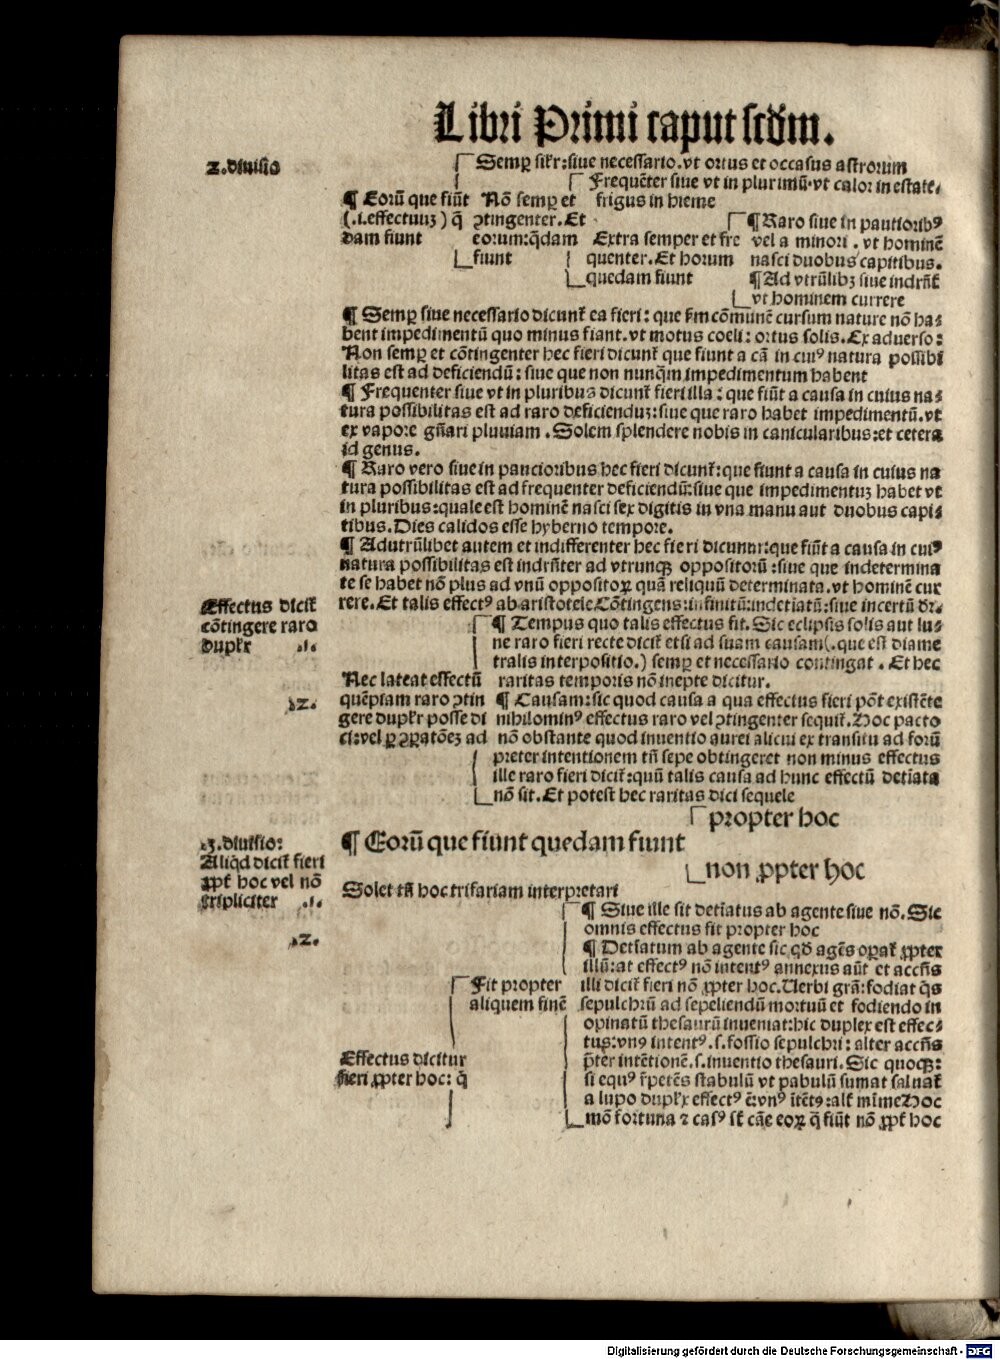 Libri Primi caput scďm.
2.diuisio
Semꝑ sił'r:siue necessario.vt ortus et occasus astrorum
Frequēter siue vt in plurimū.vt calor in estate,
frigus in hieme
¶ Eorū que fiūt
(.i.effectuuꝫ) q̄
dam fiunt
Nō semꝑ et
ↄtingenter.Et
eorum:q̄dam
fiunt
Extra semper et fre
quenter.Et horum
quedam fiunt
¶ Raro siue in pautioribꝰ
vel a minori . vt hominē
nasci duobus capitibus.
¶ Ad vtrūlibꝫ siue indrn̄t
vt hominem currere
¶ Semꝑ siue necessario dicunt̄ ea fieri: que ẜm cōmunē cursum nature nō ha⸗
bent impedimentū quo minus fiant.vt motus coeli: ortus solis.Ex aduerso:
Non semꝑ et cōtingenter hec fieri dicunt̄ que fiunt a cā in cuiꝰ natura possibi
litas est ad deficiendū: siue que non nunq̄m impedimentum habent
¶ Frequenter siue vt in pluribus dicunt̄ fieri illa: que fiūt a causa in cuius na⸗
tura possibilitas est ad raro deficienduꝫ:siue que raro habet impedimentū.vt
ex vapore gn̄ari pluuiam .Solem splendere nobis in canicularibus:et cetera
id genus.
¶ Raro vero siue in paucioribus hec fieri dicunt̄:que fiunt a causa in cuius na
tura possibilitas est ad frequenter deficiendū:siue que impedimentuꝫ habet vt
in pluribus:quale est hominē nasci sex digitis in vna manu aut duobus capi⸗
tibus.Dies calidos esse hyberno tempore.
¶ Adutrūlibet autem et indifferenter hec fieri dicuntur:que fiūt a causa in cuiꝰ
natura possibilitas est indrn̄ter ad vtrunqꝫ oppositorū:siue que indetermina
te se habet nō plus ad vnū oppositoꝝ quā reliquū determinata.vt hominē cur
rere.Et talis effectꝰ ab aristotele Cōtingens:infinitū:indetiatū:siue incertū dr̄.
Effectus dicit̄
cōtingere raro
duplr̄ .1.
.2.
Nec lateat effectū
quēpiam raro ↄtin
gere duplr̄ posse di
ci:vel ꝑ ꝯꝑatōeꝫ ad
¶ Tempus quo talis effectus fit.Sic eclipsis solis aut lu⸗
ne raro fieri recte dicit̄ etsi ad suam causam(.que est diame
tralis interpositio.) semꝑ et necessario contingat . Et hec
raritas temporis nō inepte dicitur.
¶ Causam:sic quod causa a qua effectus fieri pōt existēte
nihilominꝰ effectus raro vel ↄtingenter sequit̄.Hoc pacto
nō obstante quod inuentio aurei alicui ex transitu ad forū
preter intentionem tn̄ sepe obtingeret non minus effectus
ille raro fieri dicit̄:quū talis causa ad hunc effectū detiata
nō sit.Et potest hec raritas dici sequele
.3.diuisio:
Aliq̄d dicit̄ fieri
ꝓpt̄ hoc vel nō
tripliciter .1.
.2.
¶ Eorū que fiunt quedam fiunt
propter hoc
non ꝓpter hoc
Solet tn̄ hoc trifariam interpretari
Effectus dicitur
fieri ꝓpter hoc: q̄
Fit propter
aliquem finē
¶ Siue ille sit detiatus ab agente siue nō.Sic
omnis effectus fit propter hoc
¶ Detiatum ab agente sic qd̄ agēs oꝑat̄ ꝓpter
illū:at effectꝰ nō intentꝰ annexus aūt et accn̄s
illi dicit̄ fieri nō ꝓpter hoc.Uerbi grā:fodiat q̄s
sepulchrū ad sepeliendū mortuū et fodiendo in
opinatū thesaurū inueniat:hic duplex est effec⸗
tus:vnꝰ intentꝰ.s.fossio sepulchri: alter accn̄s
p̄ter intētionē.s.inuentio thesauri.Sic quoqꝫ:
si equꝰ r̄petēs stabulū vt pabulū sumat saluat̄
a lupo duplex effectꝰ ē:vnꝰ ītētꝰ:alt̄ mīme Hoc
mō fortuna ⁊ casꝰ sūt cāe eoꝝ q̄ fiūt nō ꝓpt̄ hoc
Digitalisierung gefördert durch die Deutsche Forschungsgemeinschaft - DFG